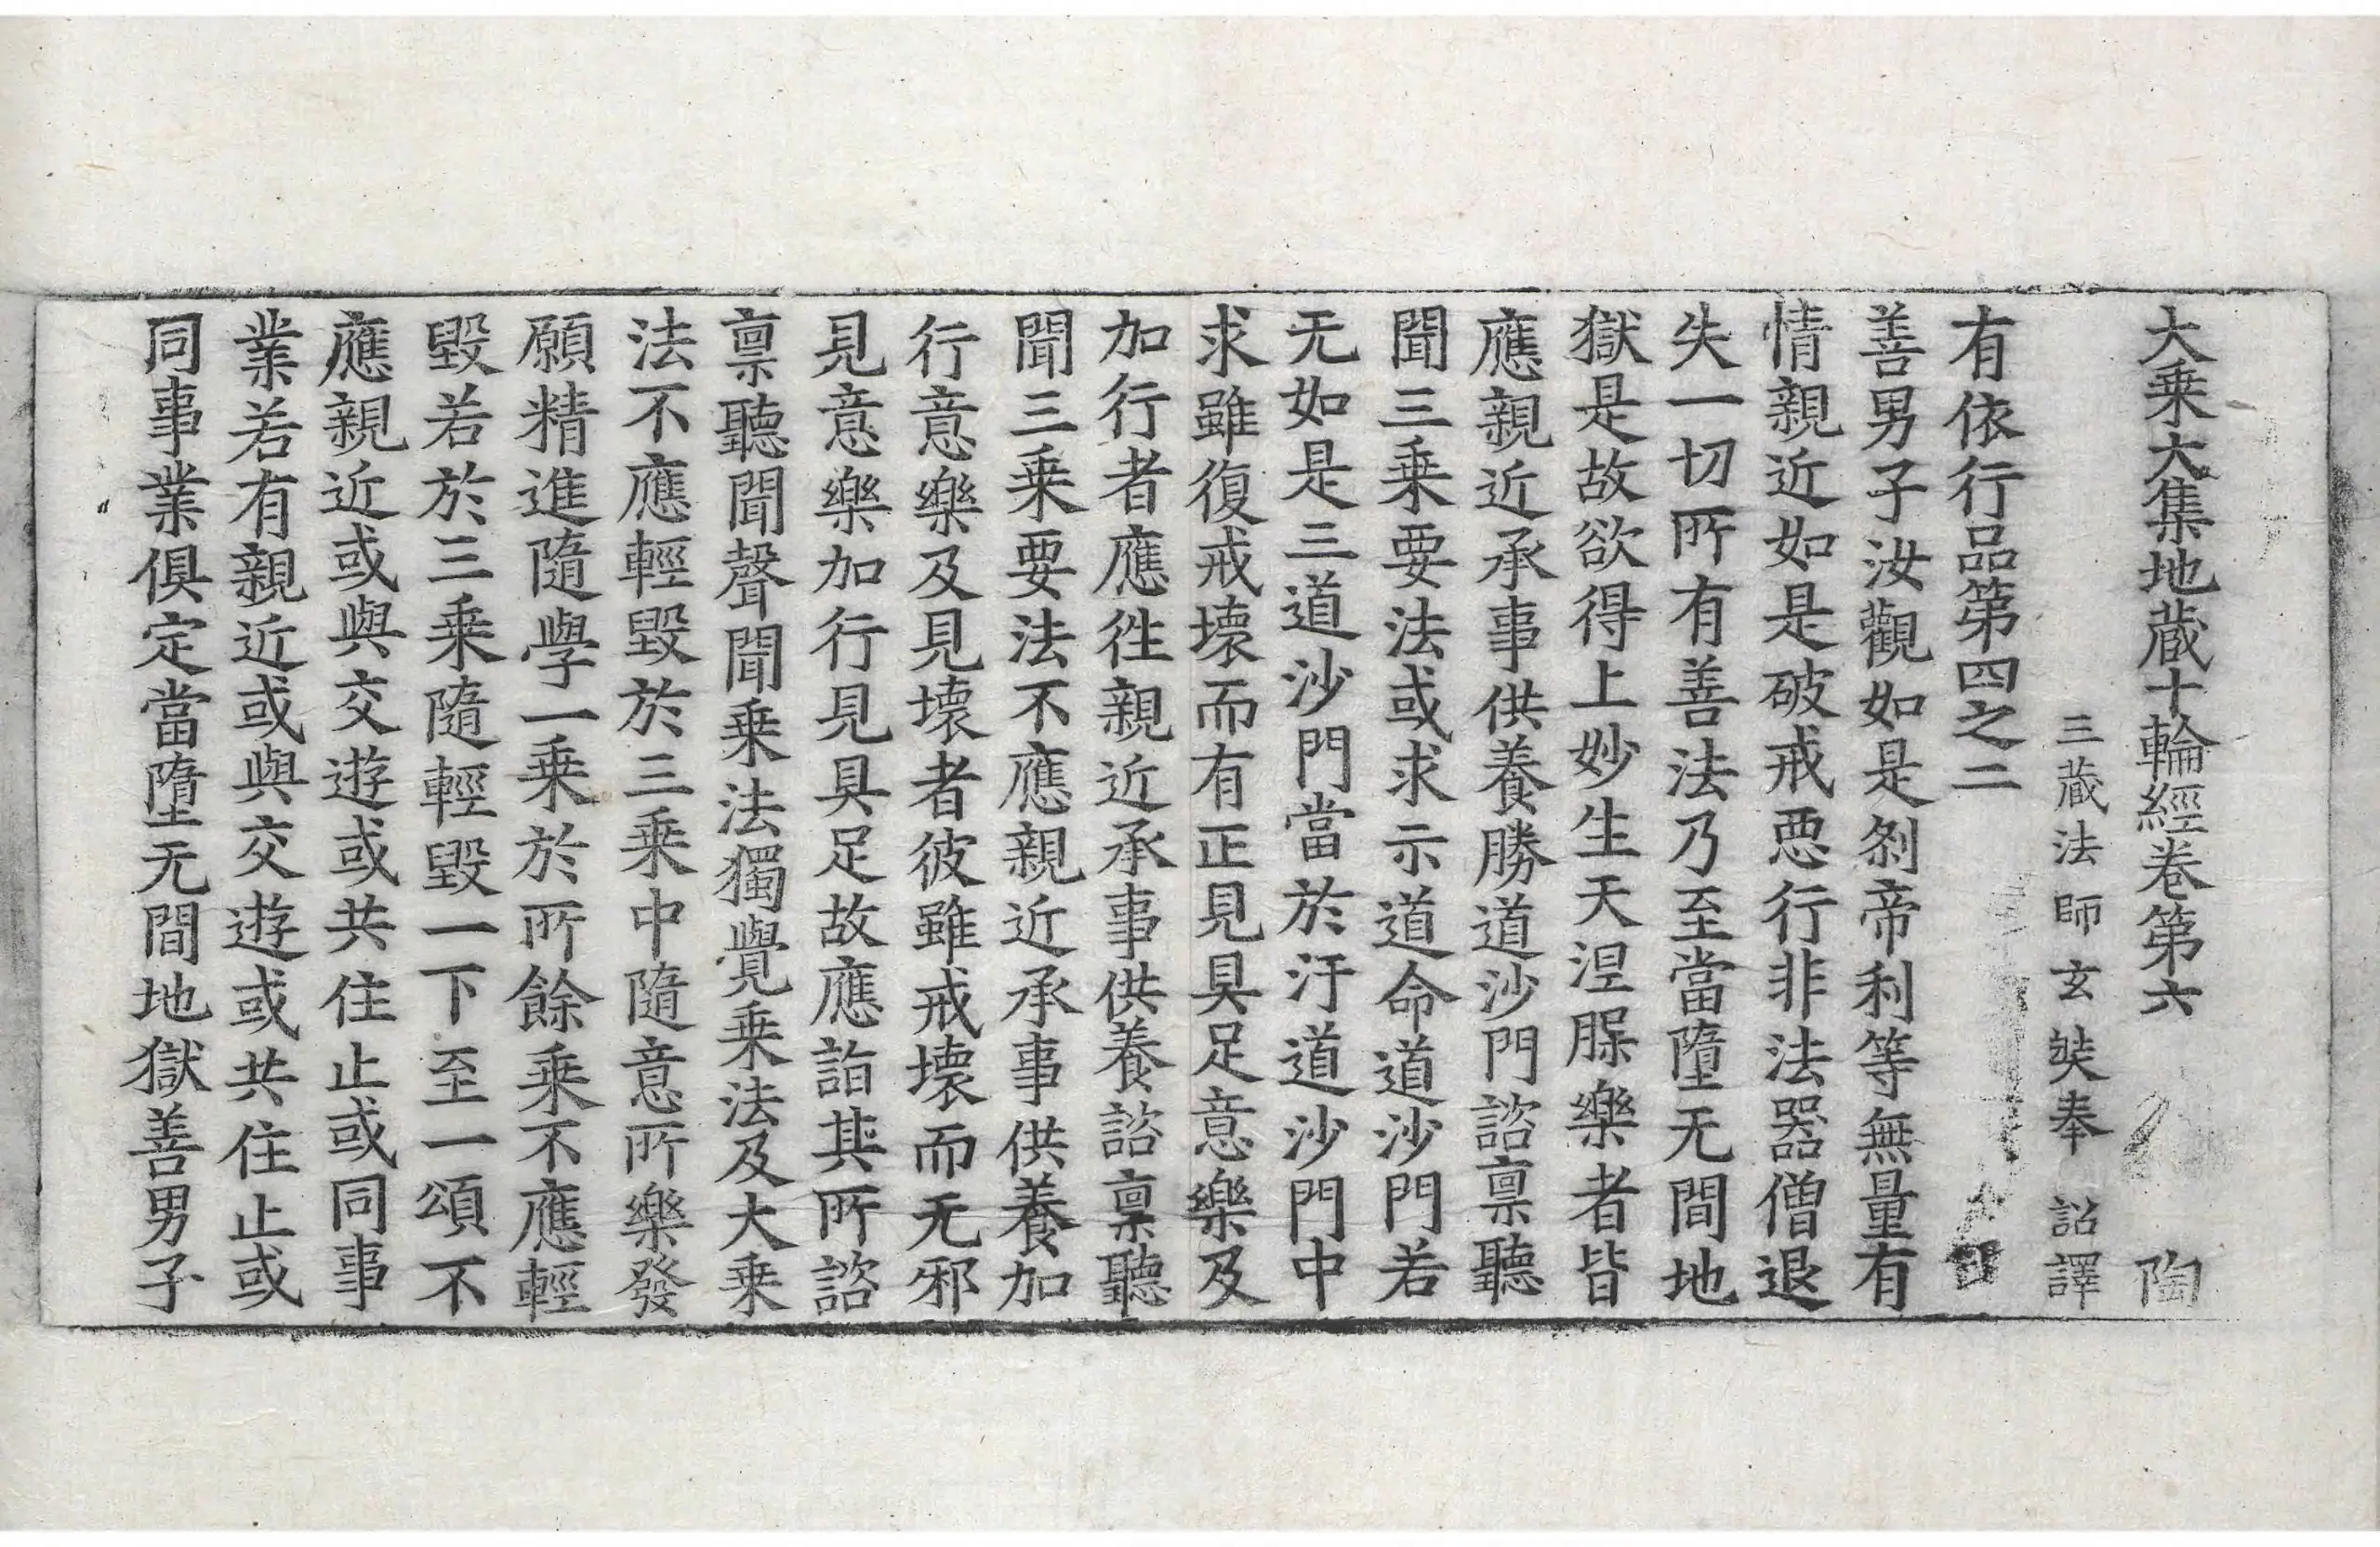 大乗大集地蔵十輪經卷第六 陶
三蔵法師玄奘奉 詔譯
有依行品第四之二
善男子汝觀如是刹帝利等無量有
情親近如是破戒惡行非法器僧退
失一切所有善法乃至當墮无間地
獄是故欲得上妙生天涅槃樂者皆
應親近承事供養勝道沙門諮稟聽
聞三乗要法或求示道命道沙門若
无如是三道沙門當於汙道沙門中
求雖復戒壞而有正見具足意樂及
加行者應徃親近承事供養諮稟聽
聞三乗要法不應親近承事供養加
行意樂及見壞者彼雖戒壞而无邪
見意樂加行見具足故應詣其所諮
稟聽聞聲聞乗法獨覺乗法及大乗
法不應輕毀於三乗中隨意所樂發
願精進隨學一乗於所餘乗不應輕
毀若於三乗隨輕毀一下至一頌不
應親近或與交遊或共住止或同事
業若有親近或與交遊或共住止或
同事業俱定當墮无間地獄善男子